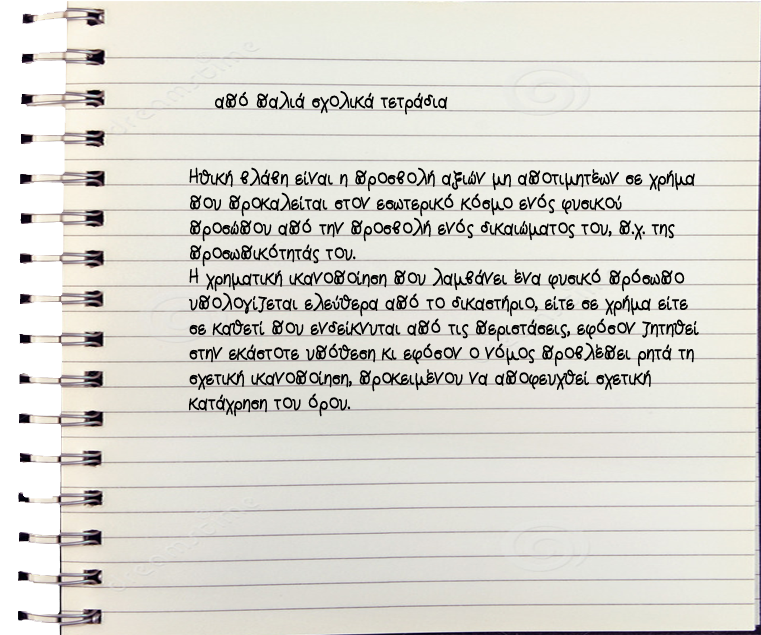 από παλιά σχολικά τετράδια
Ηθική βλάβη είναι η προσβολή αξιών μη αποτιμητέων σε χρήμα
που προκαλείται στον εσωτερικό κόσμο ενός φυσικού
προσώπου από την προσβολή ενός δικαιώματος του, π.χ. της
προσωπικότητάς του.
Η χρηματική ικανοποίηση που λαμβάνει ένα φυσικό πρόσωπο
υπολογίζεται ελεύθερα από το δικαστήριο, είτε σε χρήμα είτε
σε καθετί που ενδείκνυται από τις περιστάσεις, εφόσον ζητηθεί
στην εκάστοτε υπόθεση κι εφόσον ο νόμος προβλέπει ρητά τη
σχετική ικανοποίηση, προκειμένου να αποφευχθεί σχετική
κατάχρηση του όρου.